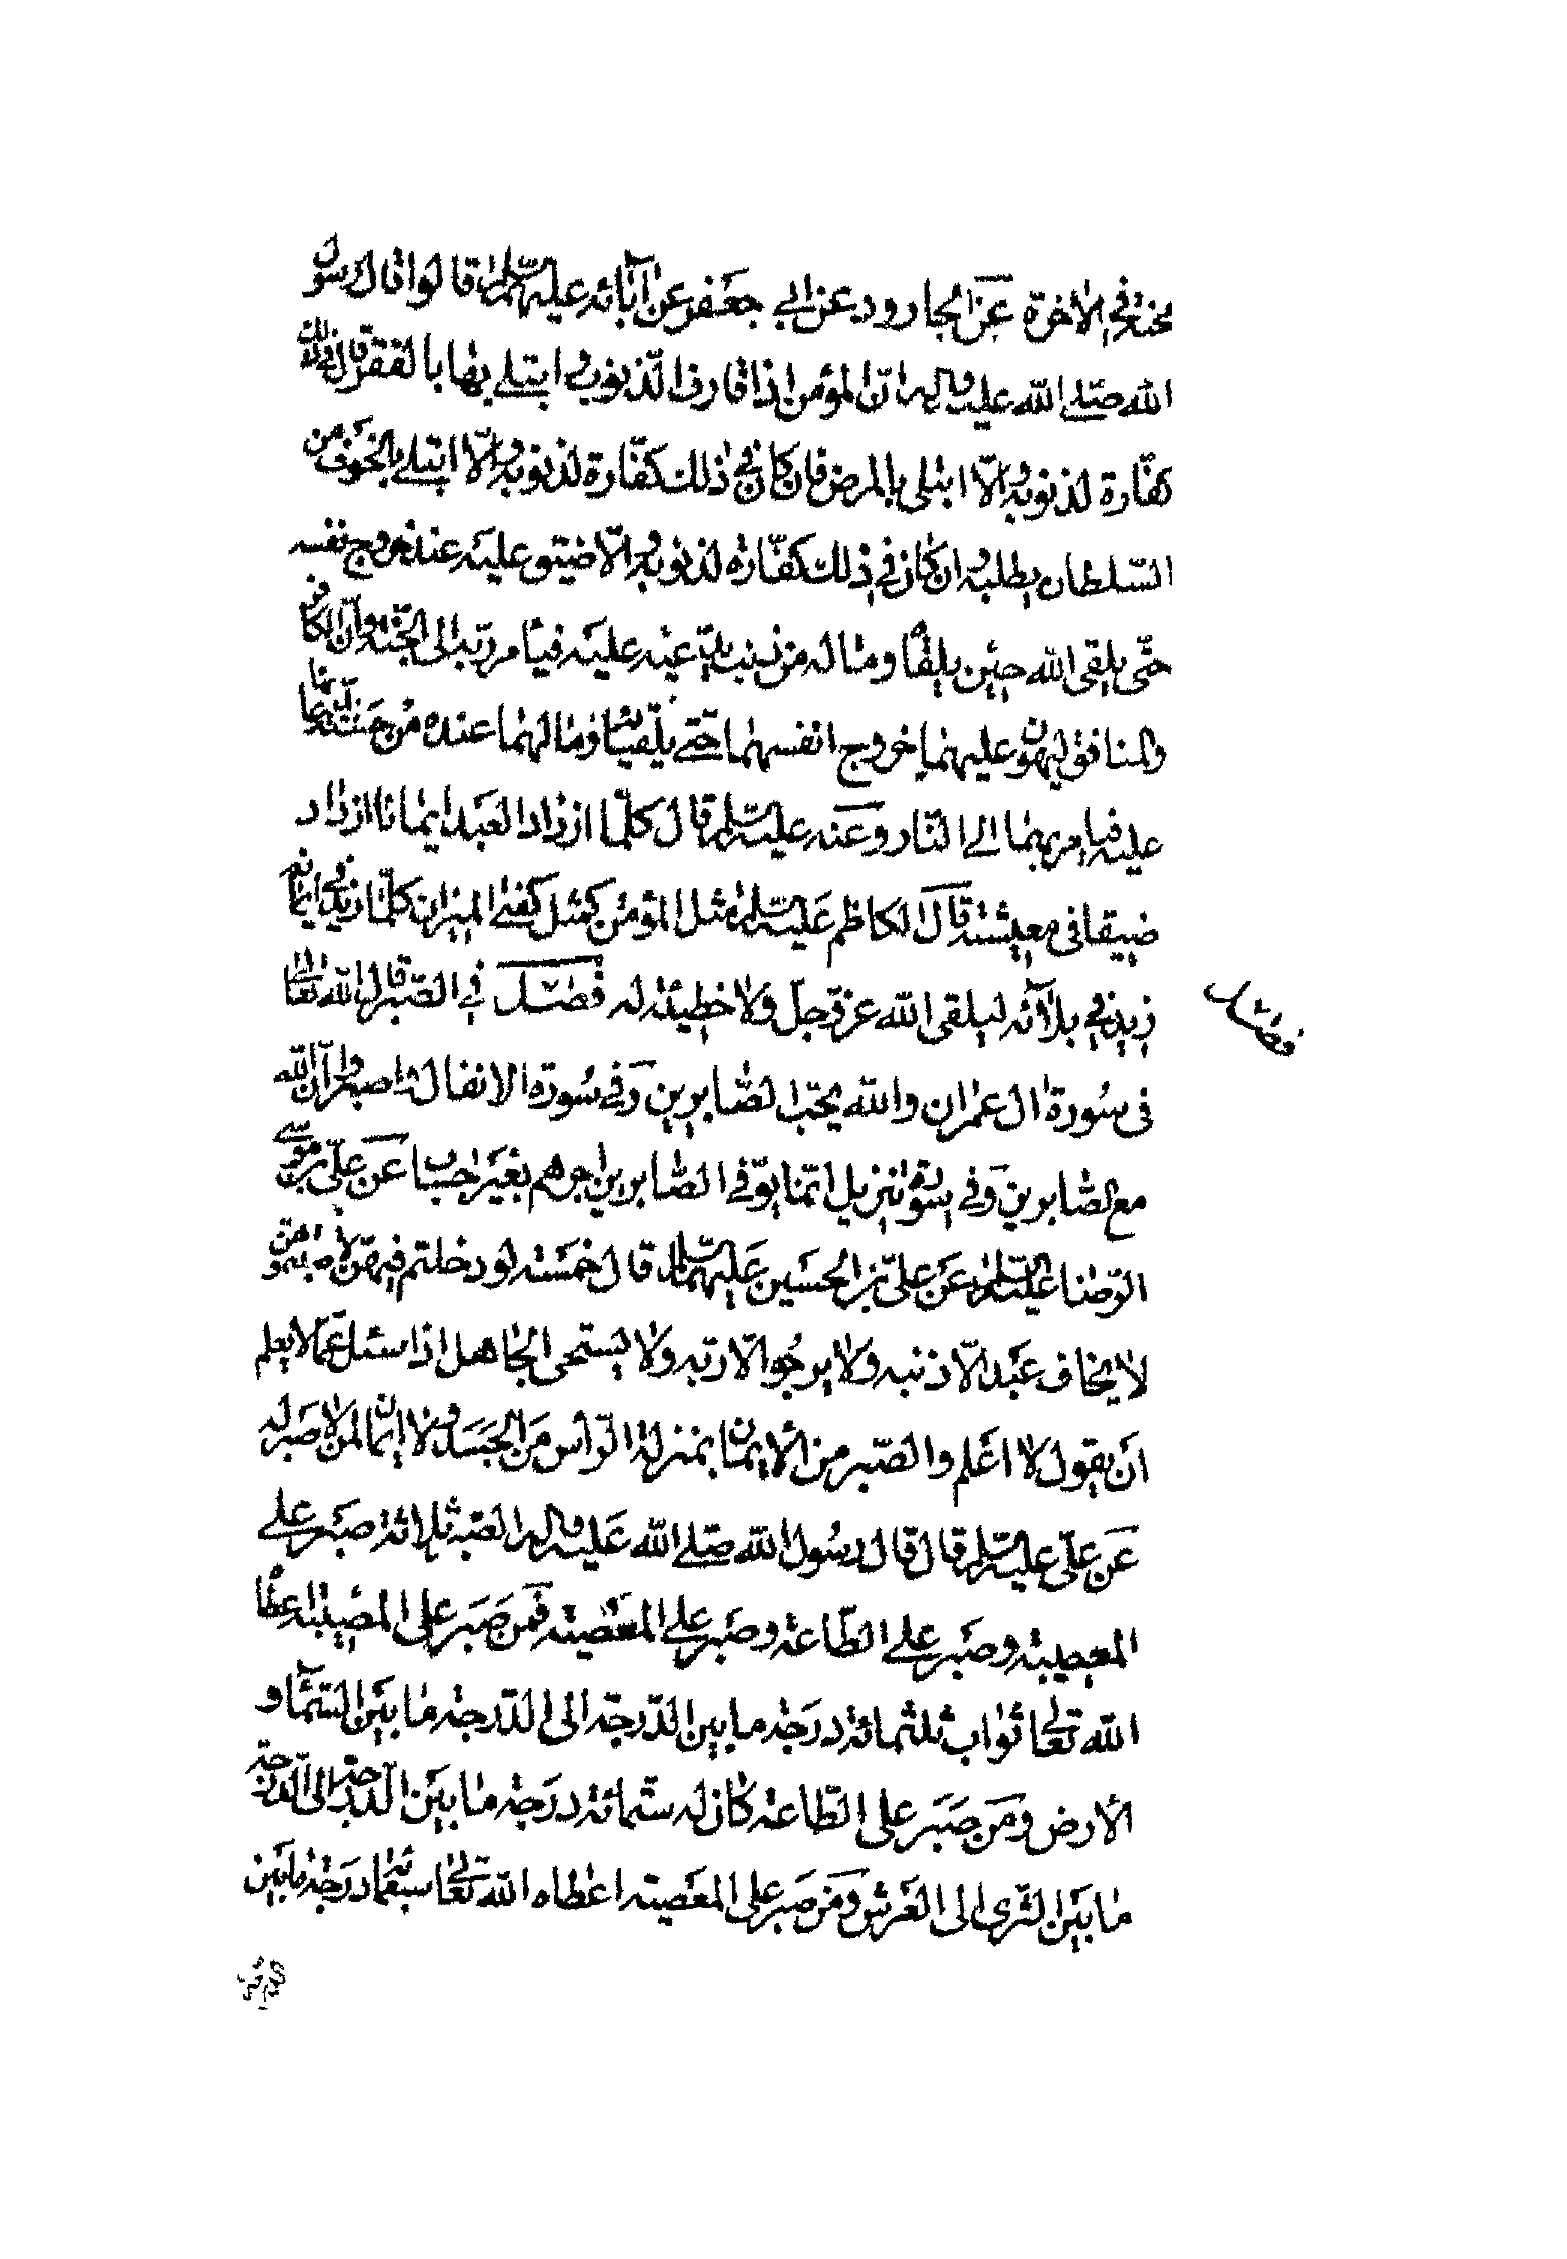 محنة في الاخرة عن الجارود عن ابي جعفر عن آبائه عليهم السلام قالوا قال رسول
الله صلى الله عليه واله ان المؤمن اذا قارف الذنوب ابتلي بها بالفقر فان كان في ذلك
كفّارة لذنوبه والّا ابتلى بالمرض فان كان في ذلك كفّارة لذنوبه والّا ابتلي بالخوف من
السّلطان يطلبه وان كان في ذلك كفّارة لذنوبه والّا ضيق عليه عند خروج نفسه
حتّى يلقى الله حين يلقاه وماله من ذنب يدّعيه عليه فيأمر به الى الجنّة وانّ الكافر
والمنافق ليهون عليهما خروج انفسهما حتى يلقيان الله وما لهما عنده من حسنة يدّعيانها
عليه فيامر بهما الى النّار وعنه عليه السلم قال كلّما ازداد العبد ايمانا ازداد
ضيقا في معيشته قال الكاظم عليه السلم مثل المؤمن كمثل كفتى الميزان كلّما زيد في ايمانه
زيد في بلآئه ليلقى الله عزّ وجلّ ولا خطيئة له فصل في الصّبر قال الله تعالى
فى سورة ال عمران والله يحبّ الصّابرين وفي سورة الانفال واصبروا انّ الله
مع الصّابرين وفي سورة تنزيل انّما يوفّى الصّابرين اجرهم بغير حساب عن علىّ بن موسى
الرّضا عليه السلم عن علىّ بن الحسين عليهما السلام قال خمسة لو دخلتم فيهنّ لاصبتموهن
لا يخاف عبد الّا ذنبه ولا يرجو الّا ربّه ولا يستحى الجاهل اذا سئل عمّا لا يعلم
ان يقول لا اعلم والصّبر من الايمان بمنزلة الرّأس من الجسد ولا ايمان لمن لا صبر له
عن علىّ عليه السلم قال قال رسول الله صلى الله عليه واله الصّبر ثلاثة صبر على
المصيبة وصبر على الطّاعة وصبر على المعصية فمن صبر على المصيبة اعطاه
الله تعالى ثواب ثلثمائة درجة ما بين الدّرجة الى الدّرجة ما بين السّمآء و
الارض ومن صبر على الطّاعة كان له ستّمائة درجة ما بين الدّرجة الى الدّرجة
ما بين الثّرى الى العرش ومن صبر على المعصية اعطاه الله تعالى سبعمائة درجة ما بين
فصل